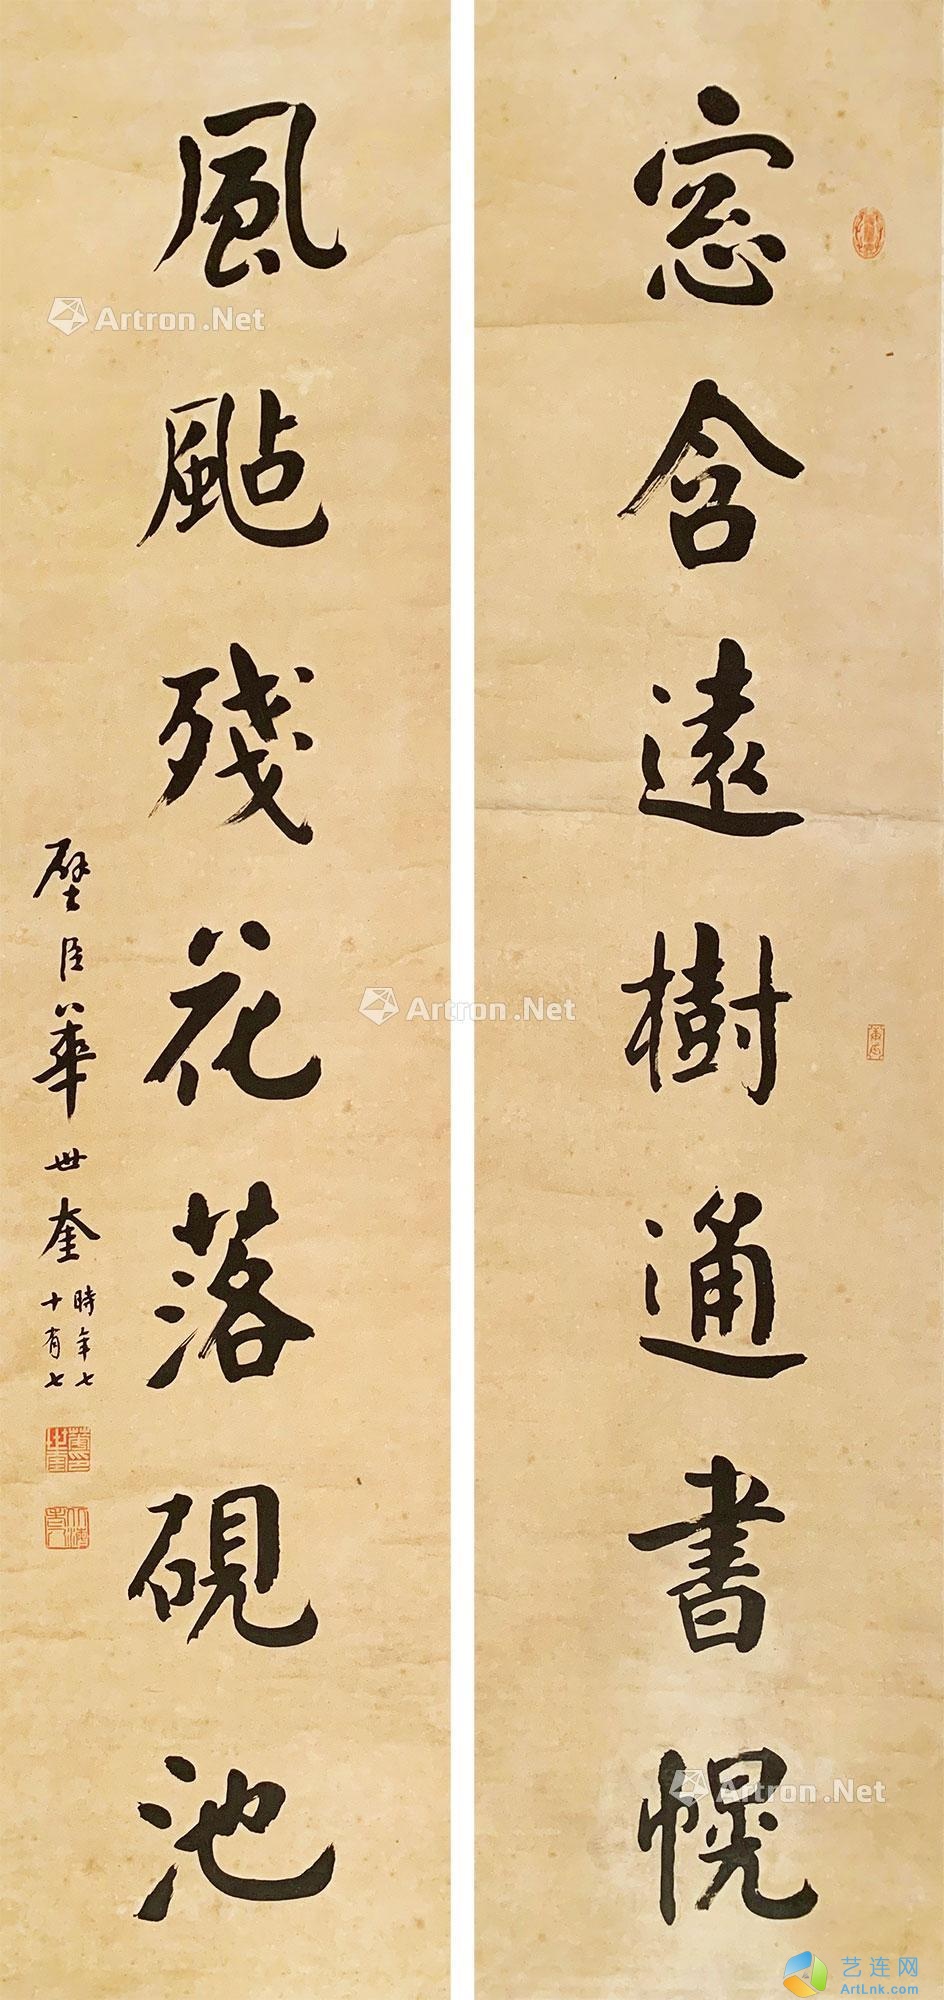 窓含遠樹通書幌
風颭殘花落硯池
璧臣華世奎
時年七
十有七
Artron.Net
Artron.Net
Artron.Net
艺连网
ArtLnk.com